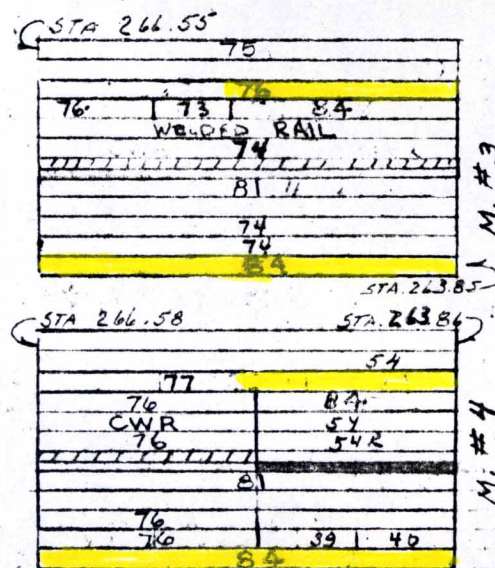 STA 266.55
75
76
76 73 84
WELDED RAIL
74
81
74
74
84
STA. 263.85
M. #3
STA 266.58 STA. 263.86
54
77
76 84
CWR 54
76 54R
81
76
76 39 40
84
M. #4